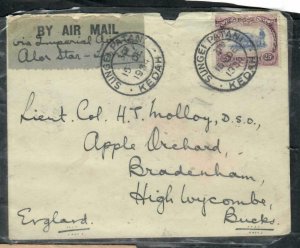 BY AIR MAIL
via Imperial
Alor Star -
SUNGEI PATANI
KEDAH
SUNGEI PATANI
KEDAH
Lieut. Col. H.T. Molloy, D.S.O.,
Apple Orchard,
Bradenham,
High Wycombe,
England. Bucks.